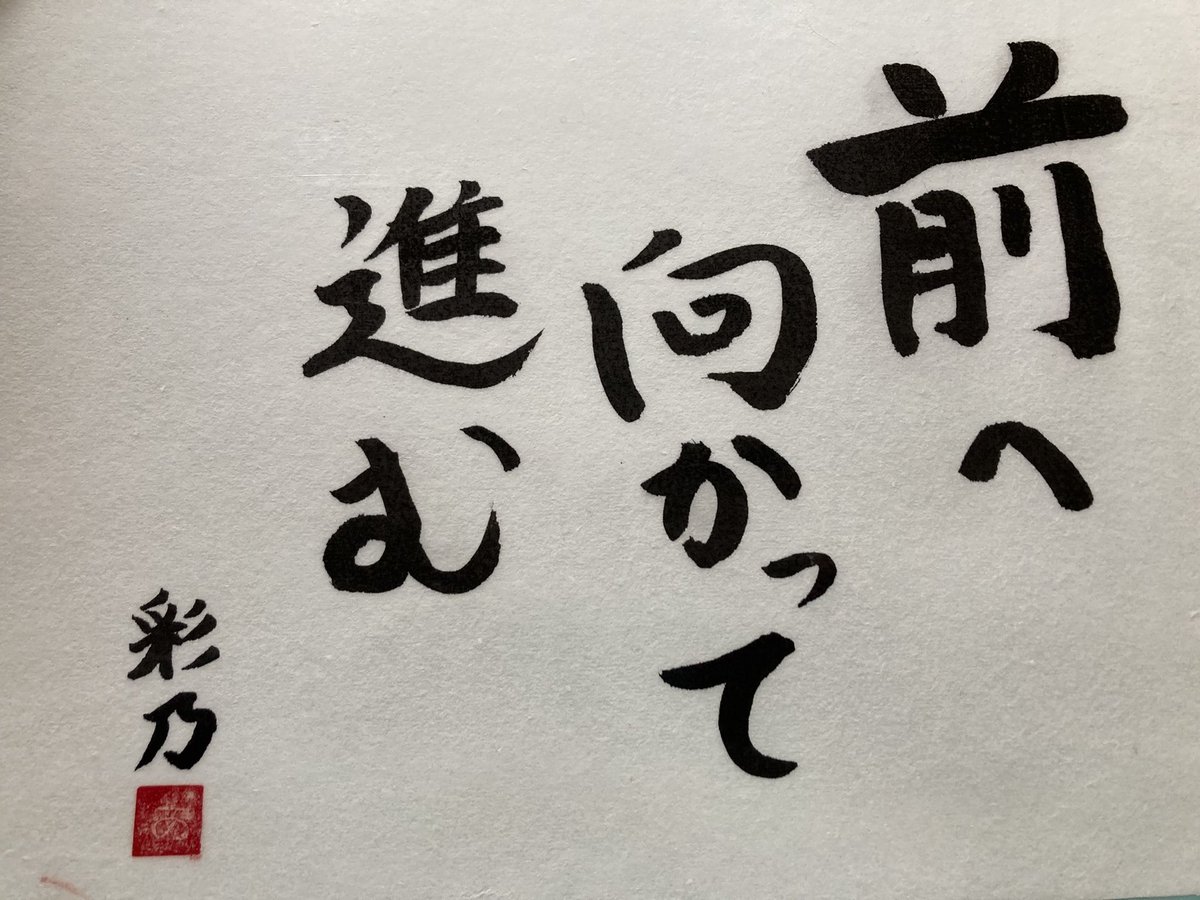 前へ
向かって
進む
彩乃